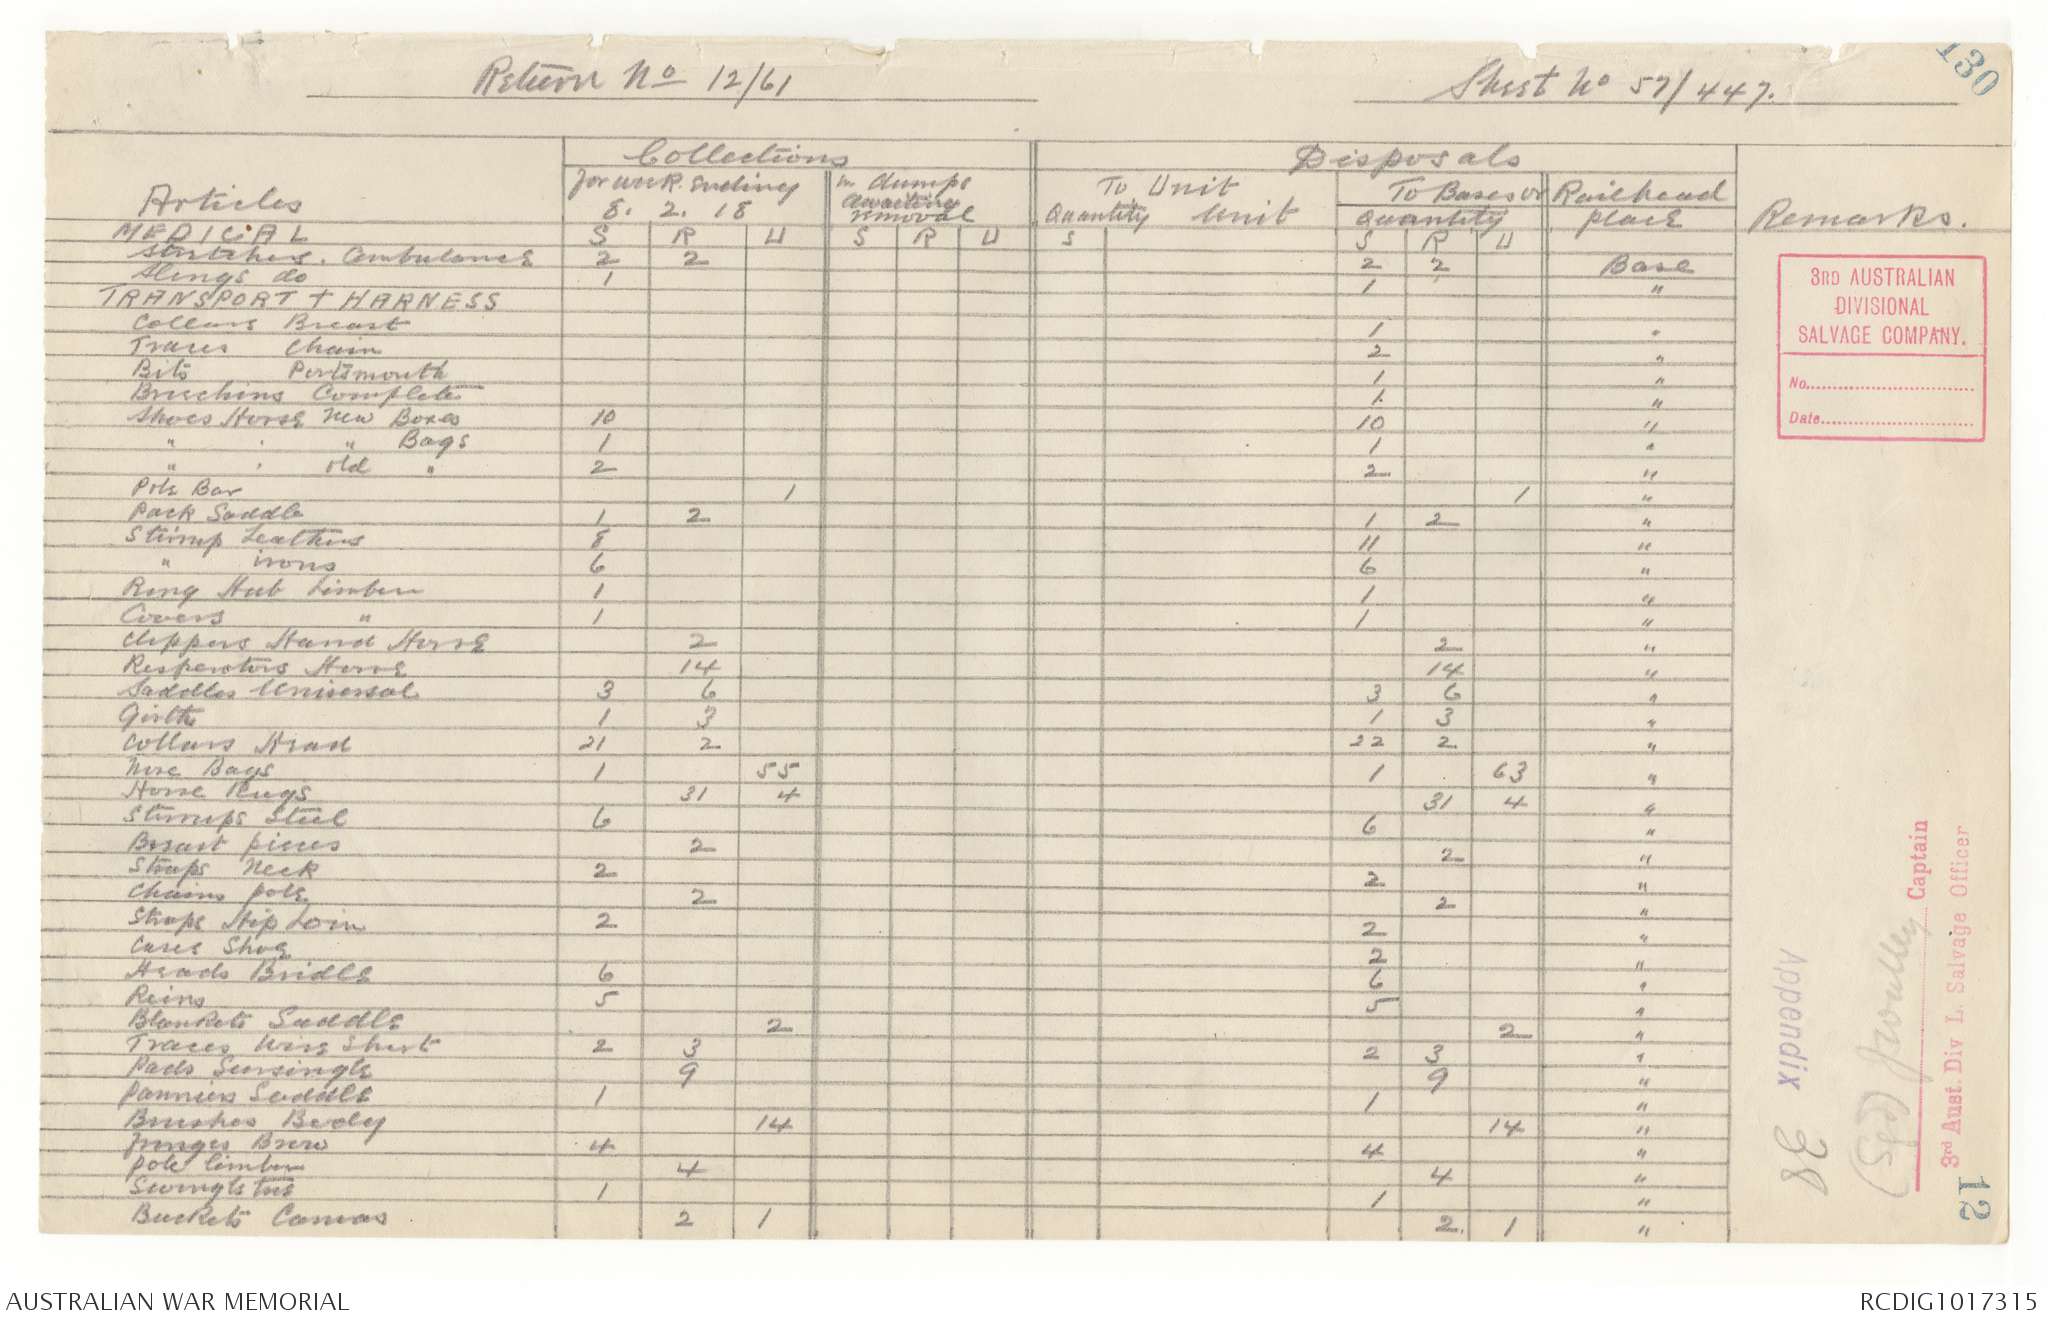 130
Return No 12/61 Sheet No 57/447.
Collections Disposals
Articles for week ending 8. 2. 18 In dumps awaiting removal To Unit To Bases or Railhead Remarks.
Quantity Unit Quantity place
MEDICAL S R U S R U S S R U
Stretchers. Ambulance 2 2 2 2 Base
Slings do 1 1 "
TRANSPORT + HARNESS
Collars Breast 1 "
Traces Chain 2 "
Bits Portsmouth 1 "
Breechins Complete 1 "
Shoes Horse New Boxes 10 10 "
" " " Bags 1 1 "
" " old " 2 2 "
Pole Bar 1 1 "
Pack Saddle 1 2 1 2 "
Stirrup Leathers 8 11 "
" irons 6 6 "
Ring Hub Limber 1 1 "
Covers " 1 1 "
Clippers Hand Horse 2 2 "
Respirators Horse 14 14 "
Saddles Universal 3 6 3 6 "
Girths 1 3 1 3 "
Collars Head 21 2 22 2 "
Nose Bags 1 55 1 63 "
Horse Rugs 31 4 31 4 "
Stirrups Steel 6 6 "
Breast pieces 2 2 "
Straps Neck 2 2 "
Chains pole 2 2 "
Straps Hip Loin 2 2 "
Cases Shoe 2 "
Heads Bridle 6 6 "
Reins 5 5 "
Blankets Saddle 2 2 "
Traces Wire Short 2 3 2 3 "
Pads Sursingle 9 9 "
Panniers Saddle 1 1 "
Brushes Body 14 14 "
Fringes Brow 4 4 "
Pole limber 4 4 "
Swingle tree 1 1 "
Buckets Canvas 2 1 2 1 "
3RD AUSTRALIAN
DIVISIONAL
SALVAGE COMPANY.
No.
Date
Appendix 38
(Sgd)
Captain
3rd Aust. Div L. Salvage Officer
12
AUSTRALIAN WAR MEMORIAL RCDIG1017315